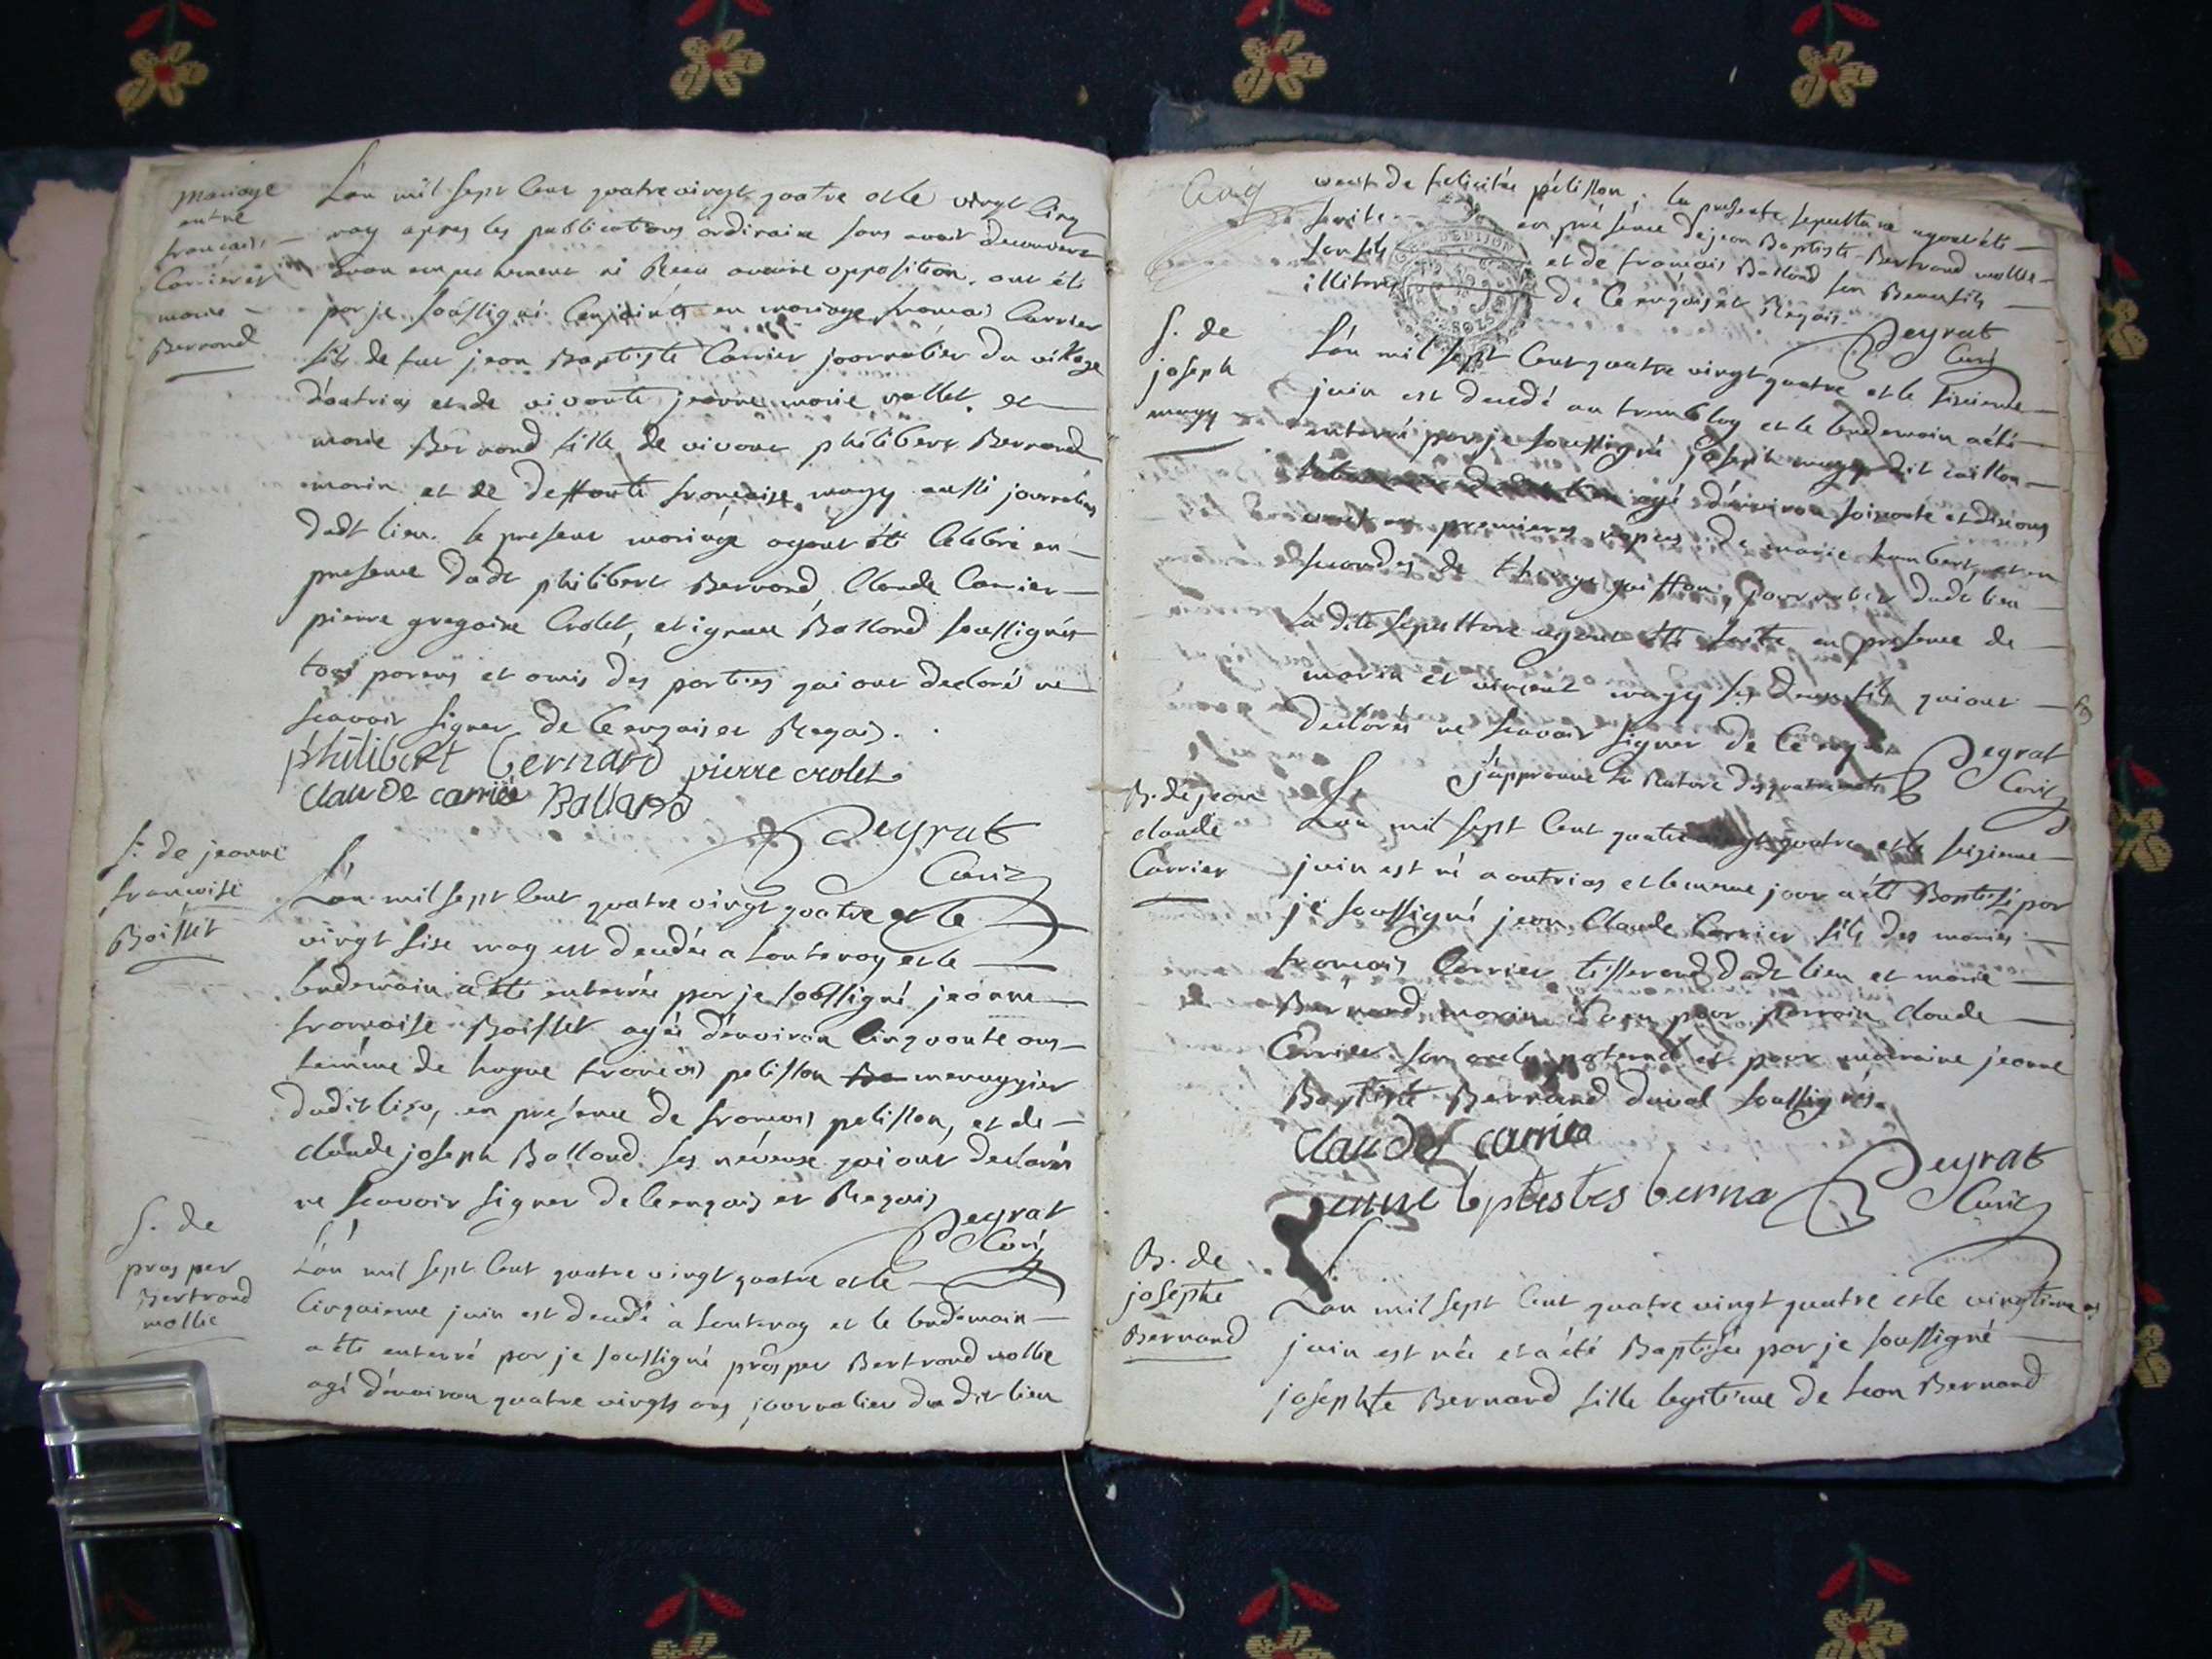 mariage
entre
françois
Carrier et
marie
Bernand
L'an mil sept Cent quatre vingt quatre et le vingt Cinq
may apres les publications ordinaire sans avoir decouvert
aucun empechement ni Recu aucune opposition, ont été
par je soussigné Conjoints en mariage francois Carrier
fils de feu jean Baptiste Carrier journalier du village
d'autrias et de vivante jeanne marie vallet, et
marie Bernand fille de vivant philibert Bernand
morin et de deffunte françoise mayy aussi journalier
dudt lieu. le present mariage ayant été Célébré en
presence dudt philibert Bernand, Claude Carrier
pierre gregoire Crolet, et ignace Balland soussignés
tous parens et amis des parties qui ont declaré ne
scavoir signer de Ce enquis et Requis.
philibert bernard pierre crolet
claude carrié Balland
Peyrat
Curé
S. de jeanne
francoise
Boisset
L'an mil sept Cent quatre vingt quatre et le
vingt sise may est decedée a fontenay et le
lendemain a été enterrée par je soussigné jeanne
francoise Boisset agée d'environ Cinquante ans
femme de hugue francois pelisson menuggier
dudit lieu, en présence de francois pelisson, et de
claude joseph Balland ses neveux qui ont declarés
ne scavoir signer de Ce enquis et Requis
Peyrat
Curé
S. de
prosper
Bertrand
mollie
L'an mil sept Cent quatre vingt quatre et le
Cinquieme juin est decedé à fontenay et le lendemain
a été enterré par je soussigné prosper Bertrand mollie
agé d'environ quatre vingts ans journalier du dit lieu
Cinq
veuf de felicitée pélisson, la presente sepulture ayant été
faite en présence de jean Baptiste Bertrand mollie
son fils et de francois Balland son Beaufils
illiteres de Ce enquis et Requis.
Peyrat
Curé
S. de
joseph
mayy
L'an mil sept Cent quatre vingt quatre et le sixieme
juin est decedé au tremblay et le lendemain a été
enterré par je soussigné joseph mayy dit caillon
agé d'environ soixante et dix ans
veuf en premieres nopces de marie humbert, et en
secondes de journalier dudt lieu
la dite sepulture ayant été faite en presence de
morin et vincent mayy ses deux fils qui ont
declarés ne scavoir signer de Ce requis
j'approuve la Rature des quatre mots
Peyrat
Curé
B. de jean
claude
Carrier
L'an mil sept Cent quatre vingt quatre et le seizieme
juin est né a autrias et le meme jour a été Baptisé par
je soussigné jean Claude Carrier fils des mariés
francois Carrier tisserand dudt lieu et marie
Bernand morin il a eu pour parrain claude
Carrier son oncle paternel et pour maraine jeanne
Baptiste Bernand duval soussignés.
claudes carrié
jeanne bptistes berna
Peyrat
Curé
B. de
josephte
Bernand
L'an mil sept Cent quatre vingt quatre et le vingtieme
juin est née et a été Baptisée par je soussigné
josephte Bernand fille legitime de leon Bernand